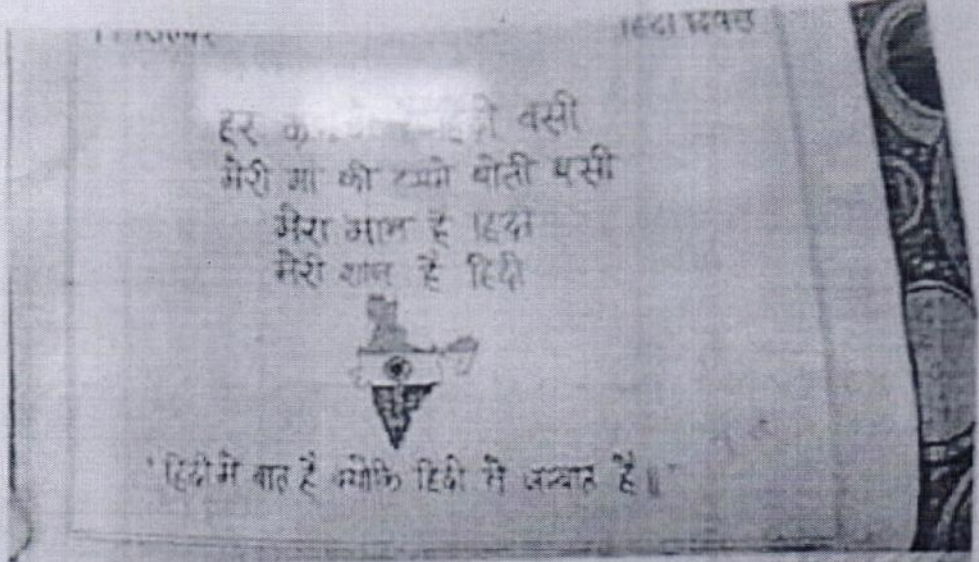 हिंदी दिवस
हर क
वसी
मेरी मां की बोली वसी
मेरा मान है हिंदी
मेरी शान है हिंदी
"हिंदी में बात है क्योंकि हिंदी में जज्बात है॥"